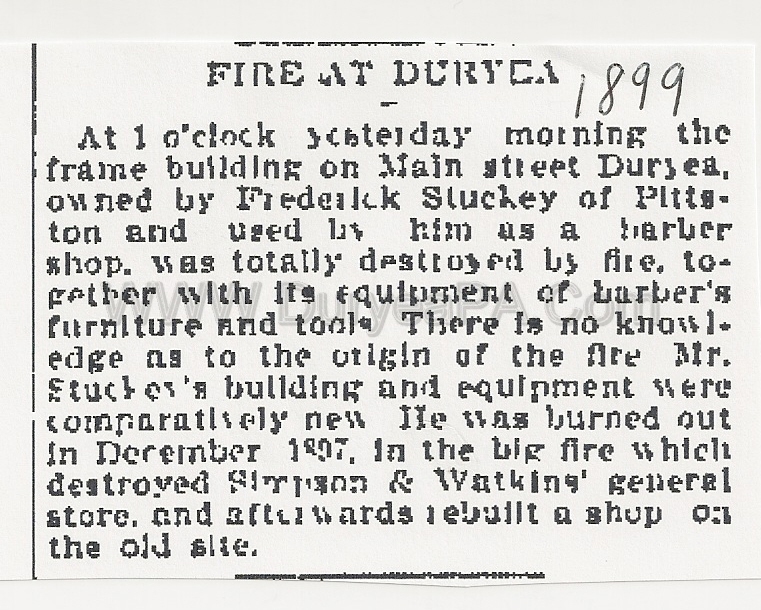 FIRE AT DURYEA
1899
At 1 o'clock yesterday morning the
frame building on Main street Duryea,
owned by Frederick Stuckey of Pitts-
ton and used by him as a barber
shop, was totally destroyed by fire, to-
gether with its equipment of barber's
furniture and tools. There is no knowl-
edge as to the origin of the fire. Mr.
Stuckey's building and equipment were
comparatively new. He was burned out
in December, 1897, in the big fire which
destroyed Simpson & Watkins' general
store, and afterwards rebuilt a shop on
the old site.
WWW.DuryeaPA.Com